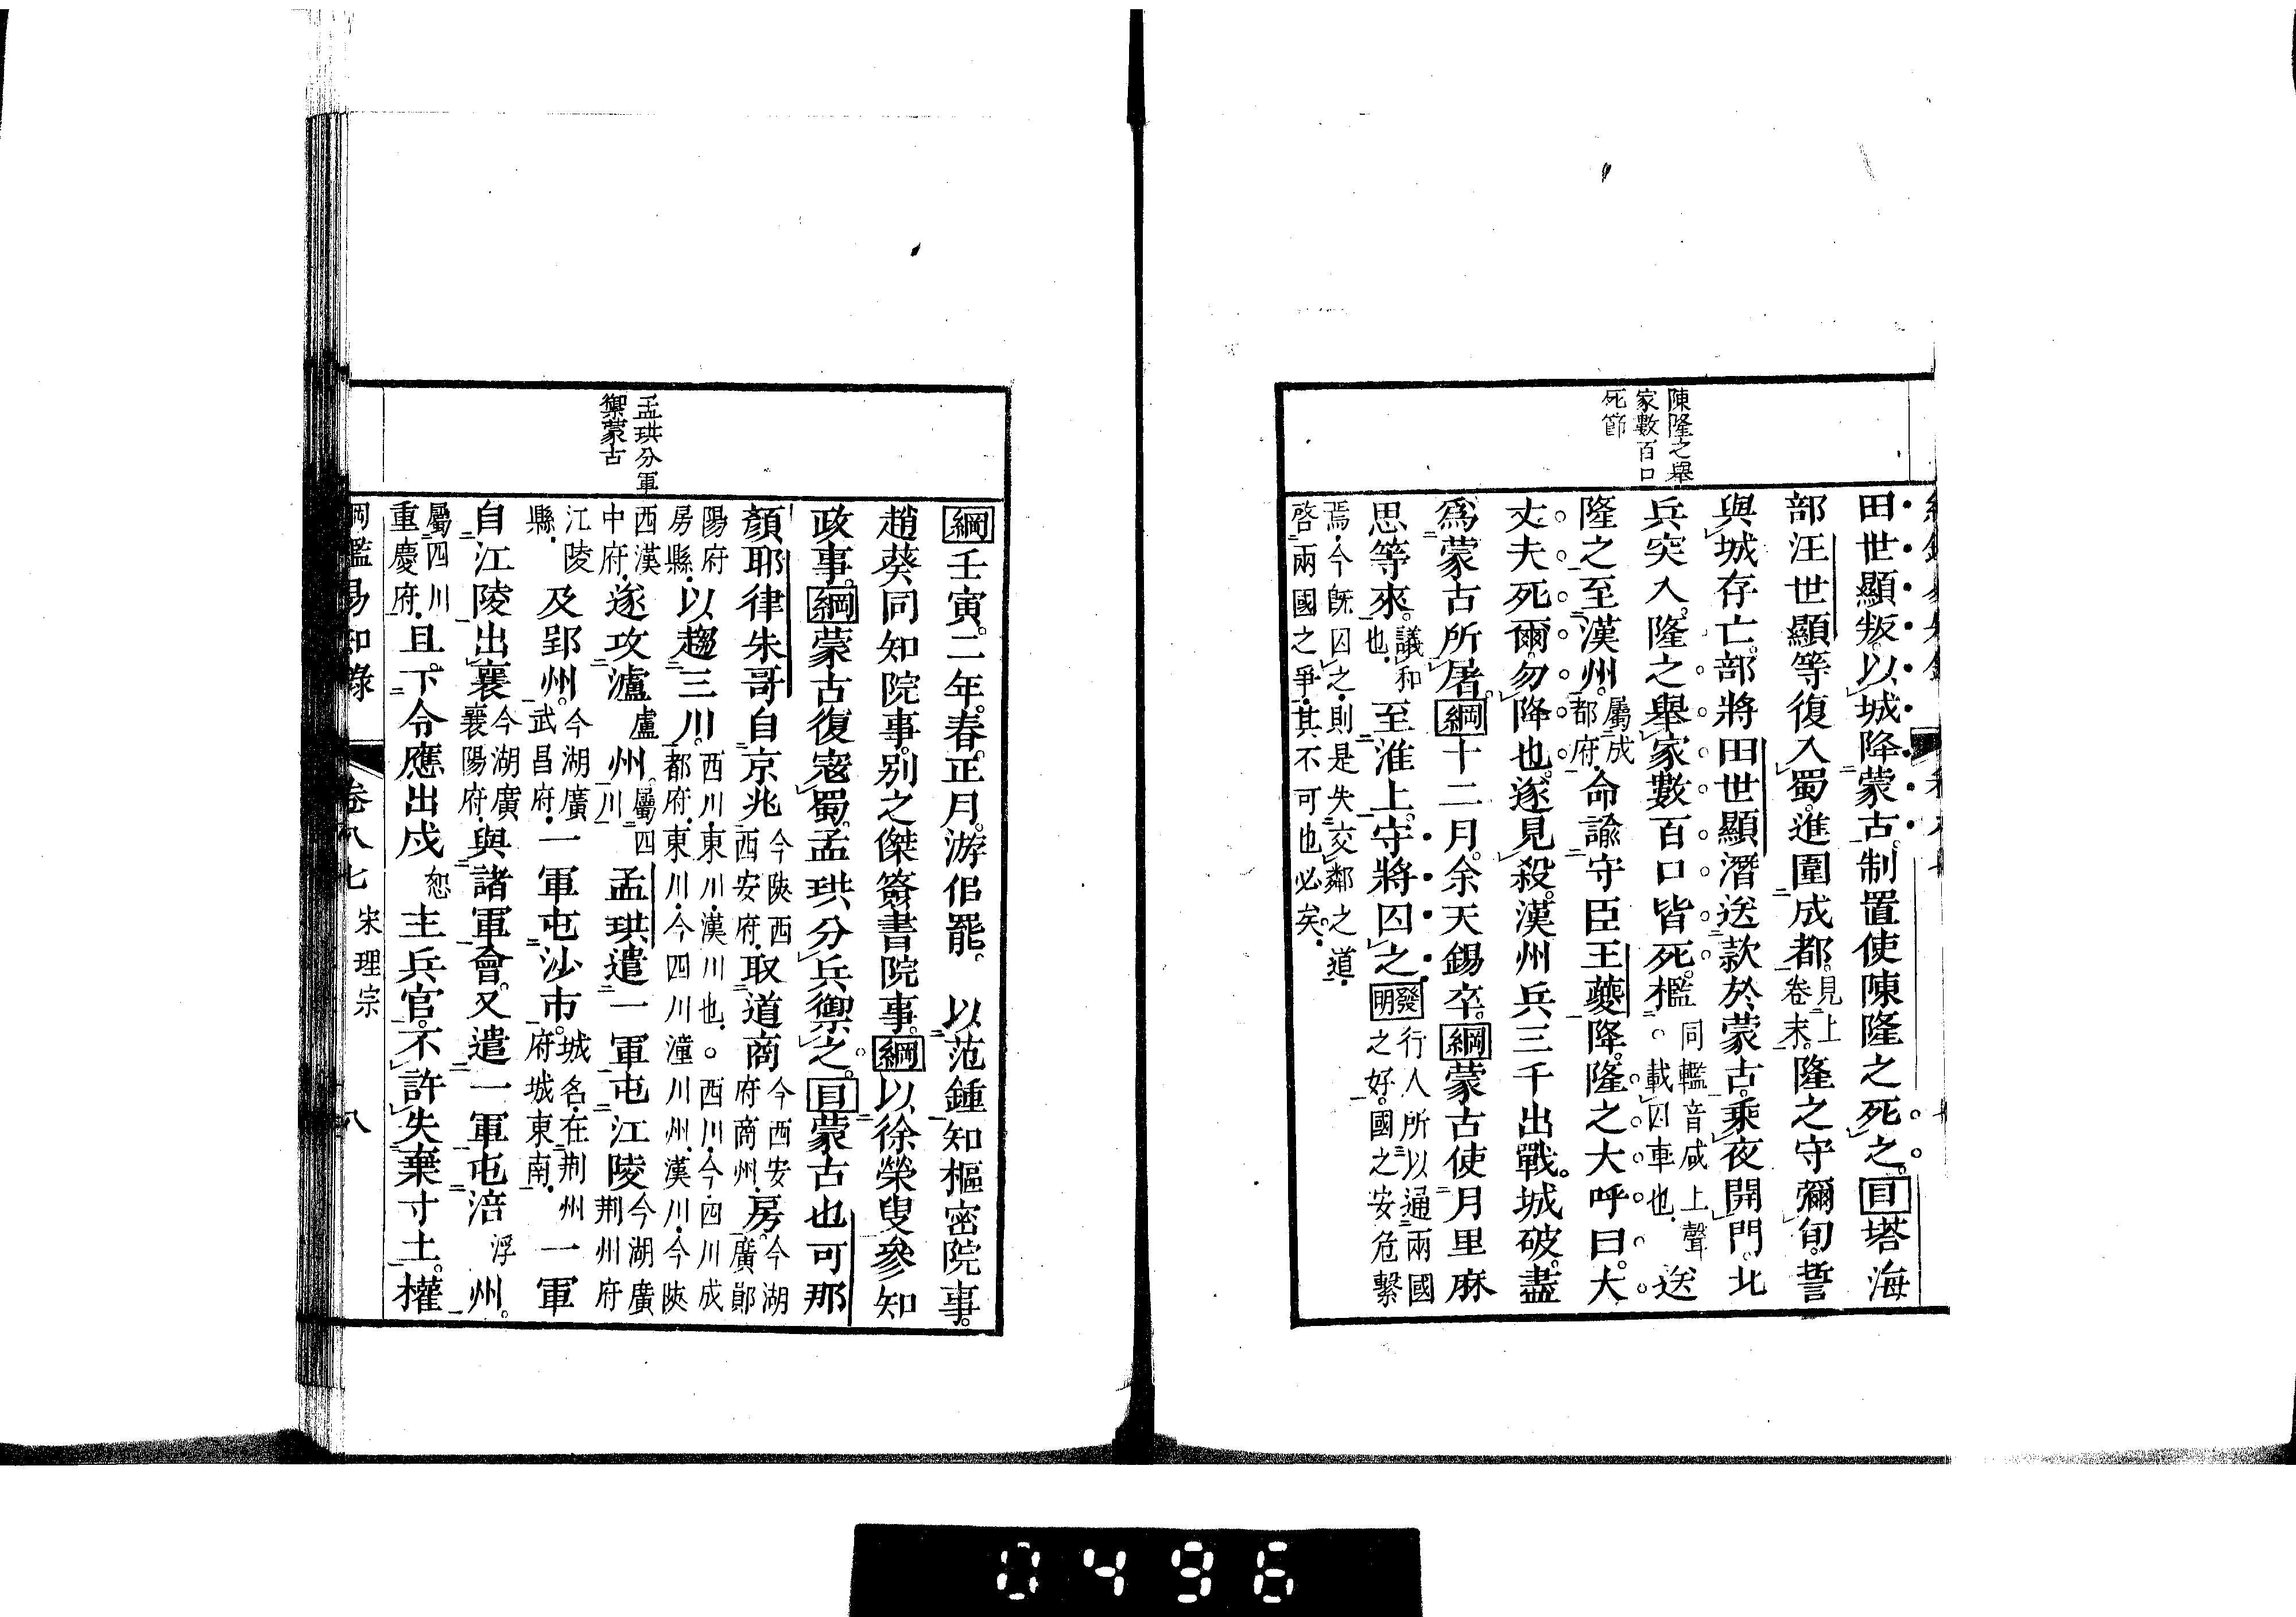 陳隆之舉
家數百口
死節
田世顯叛以城降蒙古制置使陳隆之死之目塔海
部汪世顯等復入蜀進圍成都見上卷末隆之守彌旬誓
與城存亡部將田世顯潛送款於蒙古乘夜開門北
兵突入隆之舉家數百口皆死檻同轞音咸上聲○載囚車也送
隆之至漢州屬成都府命諭守臣王夔降隆之大呼曰大
丈夫死爾勿降也遂見殺漢州兵三千出戰城破盡
爲蒙古所屠綱十二月余天錫卒綱蒙古使月里麻
思等來議和也至淮上守將囚之發明行人所以通兩國之好國之安危繫
焉今既囚之則是失交鄰之道
啓兩國之爭其不可也必矣
孟珙分軍
禦蒙古
綱壬寅二年春正月游佀罷 以范鍾知樞密院事
趙葵同知院事別之傑簽書院事綱以徐榮叟參知
政事綱蒙古復寇蜀孟珙分兵禦之目蒙古也可那
顏耶律朱哥自京兆今陝西西安府取道商今西安府商州房今湖廣鄖
陽府房縣以趨三川西川東川漢川也○西川今四川成都府東川今四川潼川州漢川今陝
西漢中府遂攻瀘盧州屬四川孟珙遣一軍屯江陵今湖廣荆州府
江陵縣及郢州今湖廣武昌府一軍屯沙市城名在荆州府城東南一軍
自江陵出襄今湖廣襄陽府與諸軍會又遣一軍屯涪浮州
屬四川重慶府且下令應出戍恕主兵官不許失棄寸土權
綱鑑易知錄 卷八七 宋理宗 八
0496